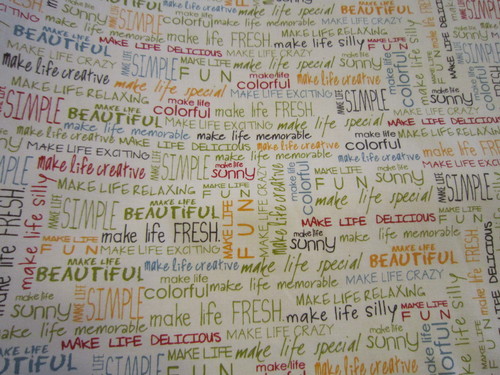 make life sunny
MAKE LIFE SIMPLE
make life colorful
make life special
MAKE LIFE EXCITING
MAKE LIFE BEAUTIFUL
make life memorable
MAKE LIFE CRAZY
MAKE LIFE DELICIOUS
make life FRESH
make life silly
MAKE LIFE FUN
make life creative
MAKE LIFE SIMPLE
MAKE LIFE FUN
make life colorful
MAKE LIFE RELAXING
make life special
make life colorful
make life creative
MAKE LIFE SIMPLE
make life sunny
MAKE LIFE SIMPLE
MAKE LIFE BEAUTIFUL
make life colorful
make life FRESH
MAKE LIFE EXCITING
make life special
make life memorable
make life memorable
MAKE LIFE DELICIOUS
make life colorful
MAKE LIFE RELAXING
MAKE LIFE EXCITING
make life creative
MAKE LIFE SIMPLE
make life sunny
MAKE LIFE CRAZY
make life colorful
MAKE LIFE FUN
make life creative
MAKE LIFE EXCITING
MAKE LIFE RELAXING
make life creative
make life special
MAKE LIFE SIMPLE
make life silly
make life FRESH
MAKE LIFE BEAUTIFUL
MAKE LIFE FUN
MAKE LIFE CRAZY
MAKE LIFE DELICIOUS
MAKE LIFE FUN
make life FRESH
make life sunny
make life memorable
MAKE LIFE EXCITING
MAKE LIFE BEAUTIFUL
make life creative
make life special
MAKE LIFE BEAUTIFUL
MAKE LIFE CRAZY
make life colorful
make life memorable
MAKE LIFE RELAXING
make life silly
make life sunny
MAKE LIFE SIMPLE
make life FRESH
make life silly
MAKE LIFE FUN
make life memorable
MAKE LIFE DELICIOUS
MAKE LIFE CRAZY
make life sunny
make life colorful
MAKE LIFE SIMPLE
MAKE LIFE FUN
make life special
make life creative